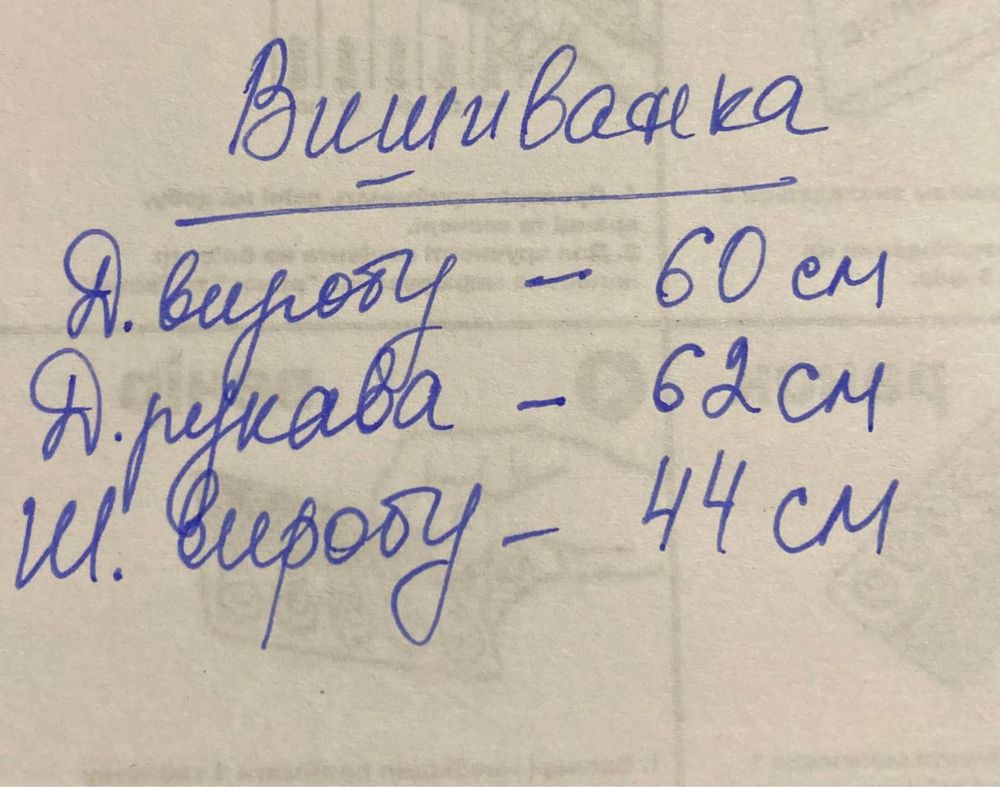 Вишиванка
Д. виробу - 60 см
Д. рукава - 62 см
Ш. виробу - 44 см